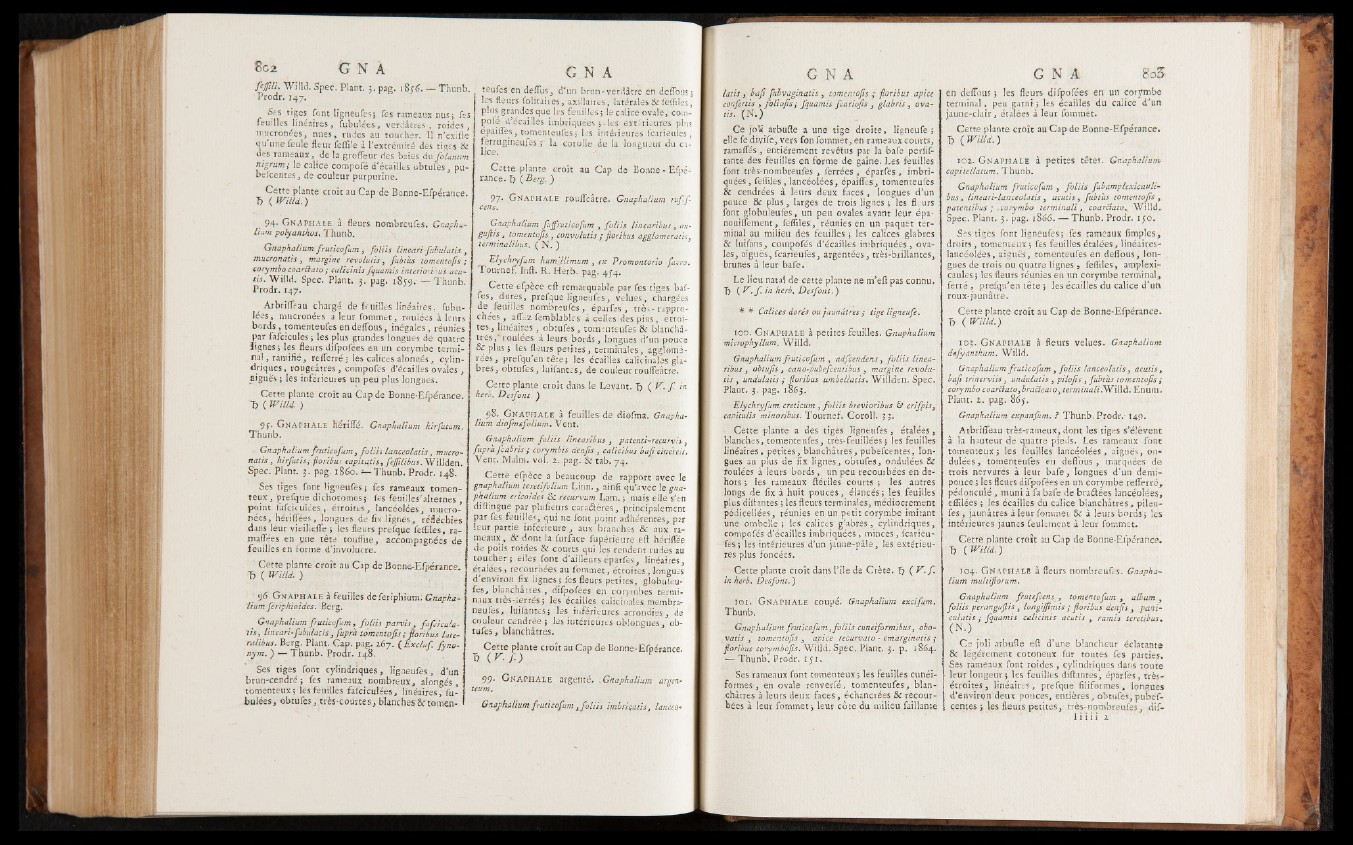 802 G N A
sessili. Willd. Spec. Plant. 3. pag. 1856. — Thunb.
Prodr. 147.
Ses tiges sont ligneuses; ses rameaux nus; ses
feuilles linéaires, subulées, verdâtres, roides,
mucronées, nues, rudes au toucher. Il n'existe
qu'une seule fleur sessile à l'extrémité des tiges &
des rameaux, de la grosseur des baies du solanum
nigrum; le calice composé d'écailles obtuses, pu-
bescentes, de couleur purpurine.
Cette plante croît au Cap de Bonne-Espérance.
♄ ( Willd. )
94. GNAPHALE à fleurs nombreuses. Gnapha-
lium polyanthos. Thunb.
Gnaphalium fruticosum, foliis lineari-subulatis,
mucronatis, margine revolutis, subtùs tomentosis;
corymbo coarctato; calicinis squamis interioribus acu-
tis. Willd. Spec. Plant. 3. pag. 1859. — Thunb.
Prodr. 147.
Arbrisseau chargé de feuilles linéaires, subu-
lées, mucronées à leur sommet, roulées à leurs
bords, tomenteuses en dessous, inégales, réunies
par fascicules; les plus grandes longues de quatre
lignes; les fleurs disposées en un corymbe termi-
nal, ramifié, resserré; les calices alongés, cylin-
driques, rougeâtres, composés d'écailles ovales,
aiguës; les inférieures un peu plus longues.
Cette plante croît au Cap de Bonne-Espérance.
♄ ( Willd. )
95. GNAPHALE hérissé. Gnaphalium hirsutum.
Thunb.
Gnaphalium fruticosum, foliis lanceolatis, mucro-
natis, hirsutis; floribus capitatis, sessilibus. Willden.
Spec. Plant. 3. pag. 1860. — Thunb. Prodr. 148.
Ses tiges sont ligneuses; ses rameaux tomen-
teux, presque dichotomes; ses feuilles alternes,
point fasciculées, étroites, lancéolées, mucro-
nées, hérissées, longues de six lignes, réfléchies
dans leur vieillesse; les fleurs presque sessiles, ra-
massées en une tête touffue, accompagnées de
feuilles en forme d'involucre.
Cette plante croît au Cap de Bonne-Espérance.
♄ ( Willd. )
96. GNAPHALE à feuilles de seriphium. Gnapha-
lium seriphioides. Berg.
Gnaphalium fruticosum, foliis parvis, fascicula-
tis, lineari-subulatis, suprà tomentosis; floribus late-
ralibus. Berg. Plant. Cap. pag. 267. (Exclus. syno-
nym.) — Thunb. Prodr. 148.
Ses tiges sont cylindriques, ligneuses, d'un
brun-cendré; ses rameaux nombreux, alongés,
tomenteux; les feuilles fasciculées, linéaires, su-
bulées, obtuses, très-courtes, blanches & tomen-
G N A
teuses en dessus, d'un brun-verdâtre en dessous;
les fleurs solitaires, axillaires, latérales & sessiles,
plus grandes que les feuilles; le calice ovale, com-
posé d'écailles imbriquées; les extérieures plus
épaisses, tomenteuses; les intérieures scarieuses,
ferrugineuses; la corolle de la longueur du ca-
lice.
Cette plante croît au Cap de Bonne-Espé-
rance. ♄ ( Berg. )
97. GNAPHALE roussecâtre. Gnaphalium ruses-
cens.
Gnaphalium suffruticosum, foliis linearibus, an-
gustis, tomentosis, convolutis; floribus agglomeratis,
terminalibus. ( N. )
Elychrysum humillimum, ex Promontorio sacro.
Tournef. Inst. R. Herb. pag. 454.
Cette espèce est remarquable par ses tiges bas-
ses, dures, presque ligneuses, velues, chargées
de feuilles nombreuses, éparses, très-rappro-
chées, assez semblables à celles des pins, étroi-
tes, linéaires, obtuses, tomenteuses & blanchâ-
tres, roulées à leurs bords, longues d'un pouce
& plus; les fleurs petites, terminales, agglomé-
rées, presqu'en tête; les écailles calicinales gla-
bres, obtuses, luisantes, de couleur roussecâtre.
Cette plante croît dans le Levant. ♄ ( V. s. in
herb. Desfont. )
98. GNAPHALE à feuilles de diosma. Gnapha-
lium diosmæfolium. Vent.
Gnaphalium foliis linearibus, patenti-recurvis,
suprà scabris; corymbis densis, calicibus basi cinereis.
Vent. Malm. vol. 2. pag. & tab. 74.
Cette espèce a beaucoup de rapport avec le
gnaphalium teretifolium Linn., ainsi qu'avec le gna-
phalium ericoides & recurvum Lam.; mais elle s'en
distingue par plusieurs caractères, principalement
par ses feuilles, qui ne sont point adhérentes, par
leur partie inférieure, aux branches & aux ra-
meaux, & dont la surface supérieure est hérissée
de poils roides & courts qui les rendent rudes au
toucher; elles sont d'ailleurs éparses, linéaires,
étalées, recourbées au sommet, étroites, longues
d'environ six lignes; ses fleurs petites, globuleu-
ses, blanchâtres, disposées en corymbes termi-
naux très-serrés; les écailles calicinales membra-
neuses, luisantes; les inférieures arrondies, de
couleur cendrée; les intérieures oblongues, ob-
tuses, blanchâtres.
Cette plante croît au Cap de Bonne-Espérance.
♄ (V. s.)
99. GNAPHALE argenté. Gnaphalium argen-
teum.
Gnaphalium fruticosum, foliis imbricatis, lanceo-
G N A
latis, basi subvaginatis, tomentosis; floribus apice
confertis, foliosis; squamis scariosis, glabris, ova-
tis. (N.)
Ce joli arbuste a une tige droite, ligneuse;
elle se divise, vers son sommet, en rameaux courts,
ramassés, entiérement revêtus par la base persis-
tante des feuilles en forme de gaîne. Les feuilles
sont très-nombreuses, serrées, éparses, imbri-
quées, sessiles, lancéolées, épaisses, tomenteuses
& cendrées à leurs deux faces, longues d'un
pouce & plus, larges de trois lignes; les fleurs
sont globuleuses, un peu ovales avant leur épa-
nouissement, sessiles, réunies en un paquet ter-
minal au milieu des feuilles; les calices glabres
& luisans, composés d'écailles imbriquées, ova-
les, aiguës, scarieuses, argentées, très-brillantes,
brunes à leur base.
Le lieu natal de cette plante ne m'est pas connu.
♄ ( V. s. in herb. Desfont. )
* * Calices dorés ou jaunâtres; tige ligneuse.
100. GNAPHALE à petites feuilles. Gnaphalium
microphyllum. Willd.
Gnaphalium fruticosum, adscendens, foliis linea-
ribus, obtusis, cano-pubescentibus, margine revolu-
tis, undulatis; floribus umbellatis. Willden. Spec.
Plant. 3. pag. 1863.
Elychrysum creticum, foliis brevioribus & crispis,
capitulis minoribus. Tournef. Coroll. 33.
Cette plante a des tiges ligneuses, étalées,
blanches, tomenteuses, très-feuillées; les feuilles
linéaires, petites, blanchâtres, pubescentes, lon-
gues au plus de six lignes, obtuses, ondulées &
roulées à leurs bords, un peu recourbées en de-
hors; les rameaux stériles courts; les autres
longs de six à huit pouces, élancés; les feuilles
plus distantes; les fleurs terminales, médiocrement
pédicellées, réunies en un petit corymbe imitant
une ombelle; les calices glabres, cylindriques,
composés d'écailles imbriquées, minces, scarieu-
ses; les intérieures d'un jaune-pâle, les extérieu-
res plus foncées.
Cette plante croît dans l'île de Crète. ♄ ( V. s.
in herb. Desfont. )
101. GNAPHALE coupé. Gnaphalium excisum.
Thunb.
Gnaphalium fruticosum, foliis cuneiformibus, obo-
vatis, tomentosis, apice recurvato-emarginatis;
floribus corymbosis. Willd. Spec. Plant. 3. p. 1864.
— Thunb. Prodr. 151.
Ses rameaux sont tomenteux; les feuilles cunéi-
formes, en ovale renversé, tomenteuses, blan-
châtres à leurs deux faces, échancrées & recour-
bées à leur sommet; leur côte du milieu saillante
G N A 803
en dessous; les fleurs disposées en un corymbe
terminal, peu garni; les écailles du calice d'un
jaune-clair, étalées à leur sommet.
Cette plante croît au Cap de Bonne-Espérance.
♄ ( Willd. )
102. GNAPHALE à petites têtes. Gnaphalium
capitellatum. Thunb.
Gnaphalium fruticosum, foliis subamplexicauli-
bus, lineari-lanceolatis, acutis, subtùs tomentosis,
patentibus; corymbo terminali, coarctato. Willd.
Spec. Plant. 3. pag. 1866. — Thunb. Prodr. 150.
Ses tiges sont ligneuses; ses rameaux simples,
droits, tomenteux; ses feuilles étalées, linéaires-
lancéolées, aiguës, tomenteuses en dessous, lon-
gues de trois ou quatre lignes, sessiles, amplexi-
caules; les fleurs réunies en un corymbe terminal,
serré, presqu'en tête; les écailles du calice d'un
roux-jaunâtre.
Cette plante croît au Cap de Bonne-Espérance.
♄ ( Willd. )
103. GNAPHALE à fleurs velues. Gnaphalium
dasyanthum. Willd.
Gnaphalium fruticosum, foliis lanceolatis, acutis,
basi trinerviis, undulatis, pilosis, subtùs tomentosis;
corymbo coarctato, bracteato, terminali. Willd. Enum.
Plant. 2. pag. 865.
Gnaphalium expansum. ? Thunb. Prodr. 149.
Arbrisseau très-rameux, dont les tiges s'élèvent
à la hauteur de quatre pieds. Les rameaux sont
tomenteux; les feuilles lancéolées, aiguës, on-
dulées, tomenteuses en dessous, marquées de
trois nervures à leur base, longues d'un demi-
pouce; les fleurs disposées en un corymbe resserré,
pédonculé, muni à sa base de bractées lancéolées,
effilées; les écailles du calice blanchâtres, pileu-
ses, jaunâtres à leur sommet & à leurs bords; les
intérieures jaunes seulement à leur sommet.
Cette plante croît au Cap de Bonne-Espérance.
♄ ( Willd. )
104. GNAPHALE à fleurs nombreuses. Gnapha-
lium multiflorum.
Gnaphalium frutescens, tomentosum, album,
foliis perangustis, longissimis; floribus densis, pani-
culatis; squamis calicinis acutis, ramis teretibus.
(N.)
Ce joli arbuste est d'une blancheur éclatante
& légérement cotoneux sur toutes ses parties.
Ses rameaux sont roides, cylindriques dans toute
leur longueur; les feuilles distantes, éparses, très-
étroites, linéaires, presque filiformes, longues
d'environ deux pouces, entières, obtuses, pubes-
centes; les fleurs petites, très-nombreuses, dis-
Iiiii 2